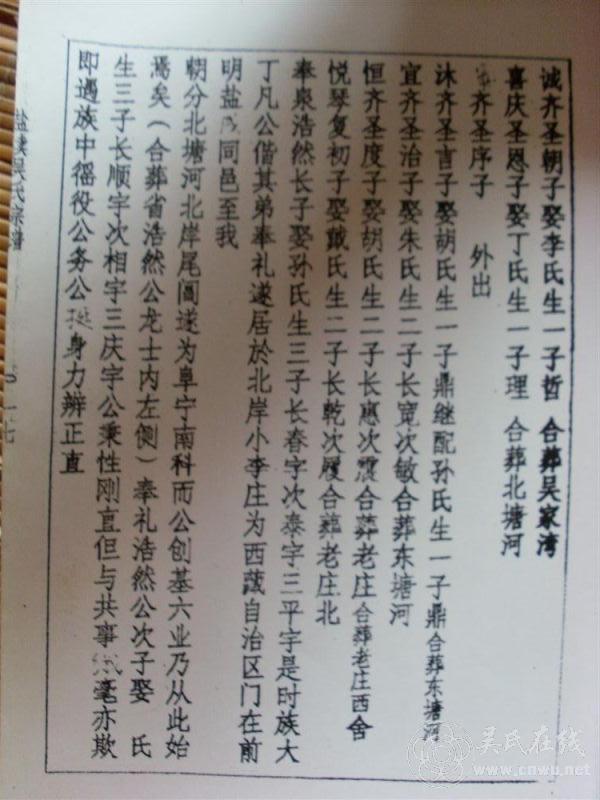 诚齐圣朝子娶李氏生一子哲 合葬吴家湾
喜庆圣恩子娶丁氏生一子理 合葬北塘河
齐圣序子 外出
沐齐圣言子娶胡氏生一子鼎继配孙氏生一子鼎合葬东塘河
宜齐圣治子娶朱氏生二子长宽次敏合葬东塘河
恒齐圣度子娶胡氏生二子长惠次震合葬老庄合葬老庄西舍
悦琴复初子娶戴氏生二子长乾次履合葬老庄北
奉泉浩然长子娶孙氏生三子长春字次泰字三平字是时族大
丁凡公偕其弟奉礼遂居於北岸小李庄为西藏自治区门在前
明盐同邑至我
朝分北塘河北岸尾阊遂为阜宁南科而公创基六业乃从此始
焉矣（合葬省浩然公龙士内左侧）奉礼浩然公次子娶 氏
生三子长顺字次相字三庆字公秉性刚直但与共事毫亦欺
即遇族中徭役公务公挺身力辨正直
盐渎吴氏宗谱
一七
吴氏在线
www.cnwu.net